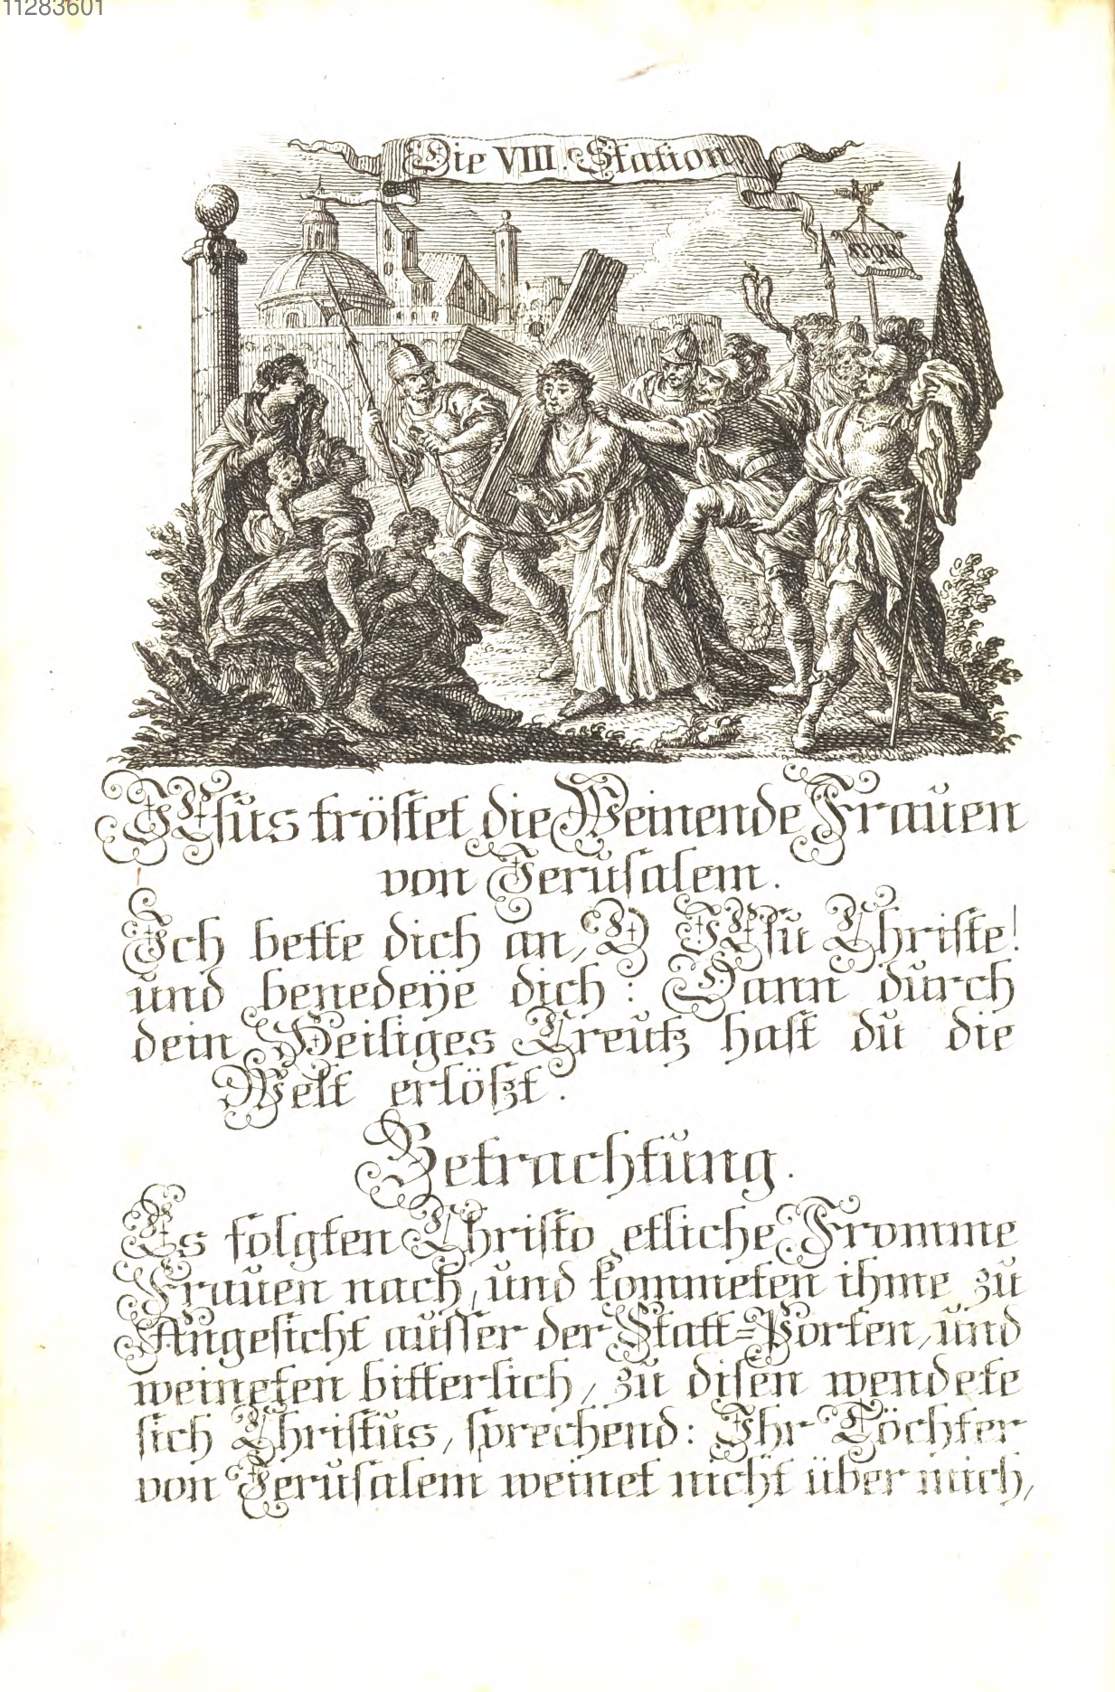 11283601
Die VIII. Station.
SPQR
JEsus tröstet die Weinende Frauen
von Jerusalem.
Ich bette dich an, O JEsu Christe!
und benedeÿe dich: Dann durch
dein Heiliges Creutz hast du die
Welt erlößt.
Betrachtung.
Es folgten Christo etliche Fromme
Frauen nach, und kommeten ihme zu
Angesicht ausser der Statt=Porten, und
weineten bitterlich, zu disen wendete
sich Christus, sprechend: Ihr Töchter
von Jerusalem weinet nicht über mich,